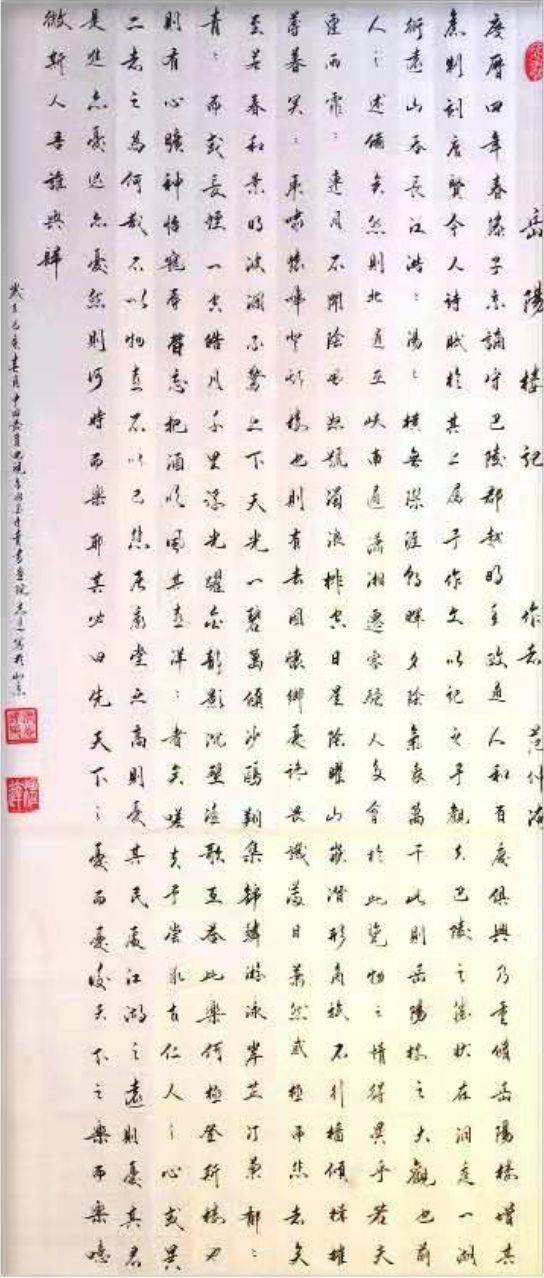 岳陽樓記 作者 范仲淹
慶曆四年春滕子京謫守巴陵郡越明年政通人和百廢俱興乃重修岳陽樓增其
舊制刻唐賢今人詩賦於其上屬予作文以記之予觀夫巴陵之勝狀在洞庭一湖
銜遠山吞長江浩浩湯湯橫無際涯朝暉夕陰氣象萬千此則岳陽樓之大觀也前
人之述備矣然則北通巫峽南通瀟湘遷客騷人多會於此覽物之情得異乎若夫
霪雨霏霏連月不開陰風怒號濁浪排空日星隱曜山嶽潛形商旅不行檣傾楫摧
薄暮冥冥虎嘯猿啼登斯樓也則有去國懷鄉憂讒畏譏滿目蕭然感極而悲者矣
至若春和景明波瀾不驚上下天光一碧萬頃沙鷗翔集錦鱗游泳岸芷汀蘭郁郁
青青而或長煙一空皓月千里浮光躍金靜影沉璧漁歌互答此樂何極登斯樓也
則有心曠神怡寵辱皆忘把酒臨風其喜洋洋者矣嗟夫予嘗求古仁人之心或異
二者之為何哉不以物喜不以己悲居廟堂之高則憂其民處江湖之遠則憂其君
是進亦憂退亦憂然則何時而樂耶其必曰先天下之憂而憂後天下之樂而樂噫
微斯人吾誰與歸